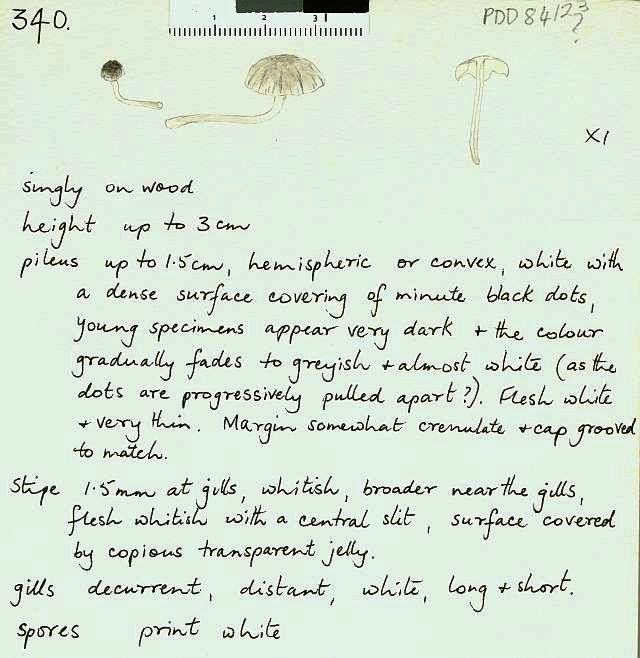 340.
1 2 3
PDD 84123
?
X1
singly on wood
height up to 3 cm
pileus up to 1.5cm, hemispheric or convex, white with
a dense surface covering of minute black dots,
young specimens appear very dark + the colour
gradually fades to greyish + almost white (as the
dots are progressively pulled apart?). Flesh white
+ very thin. Margin somewhat crenulate + cap grooved
to match.
Stipe 1.5mm at gills, whitish, broader near the gills,
flesh whitish with a central slit, surface covered
by copious transparent jelly.
gills decurrent, distant, white, long + short.
spores print white